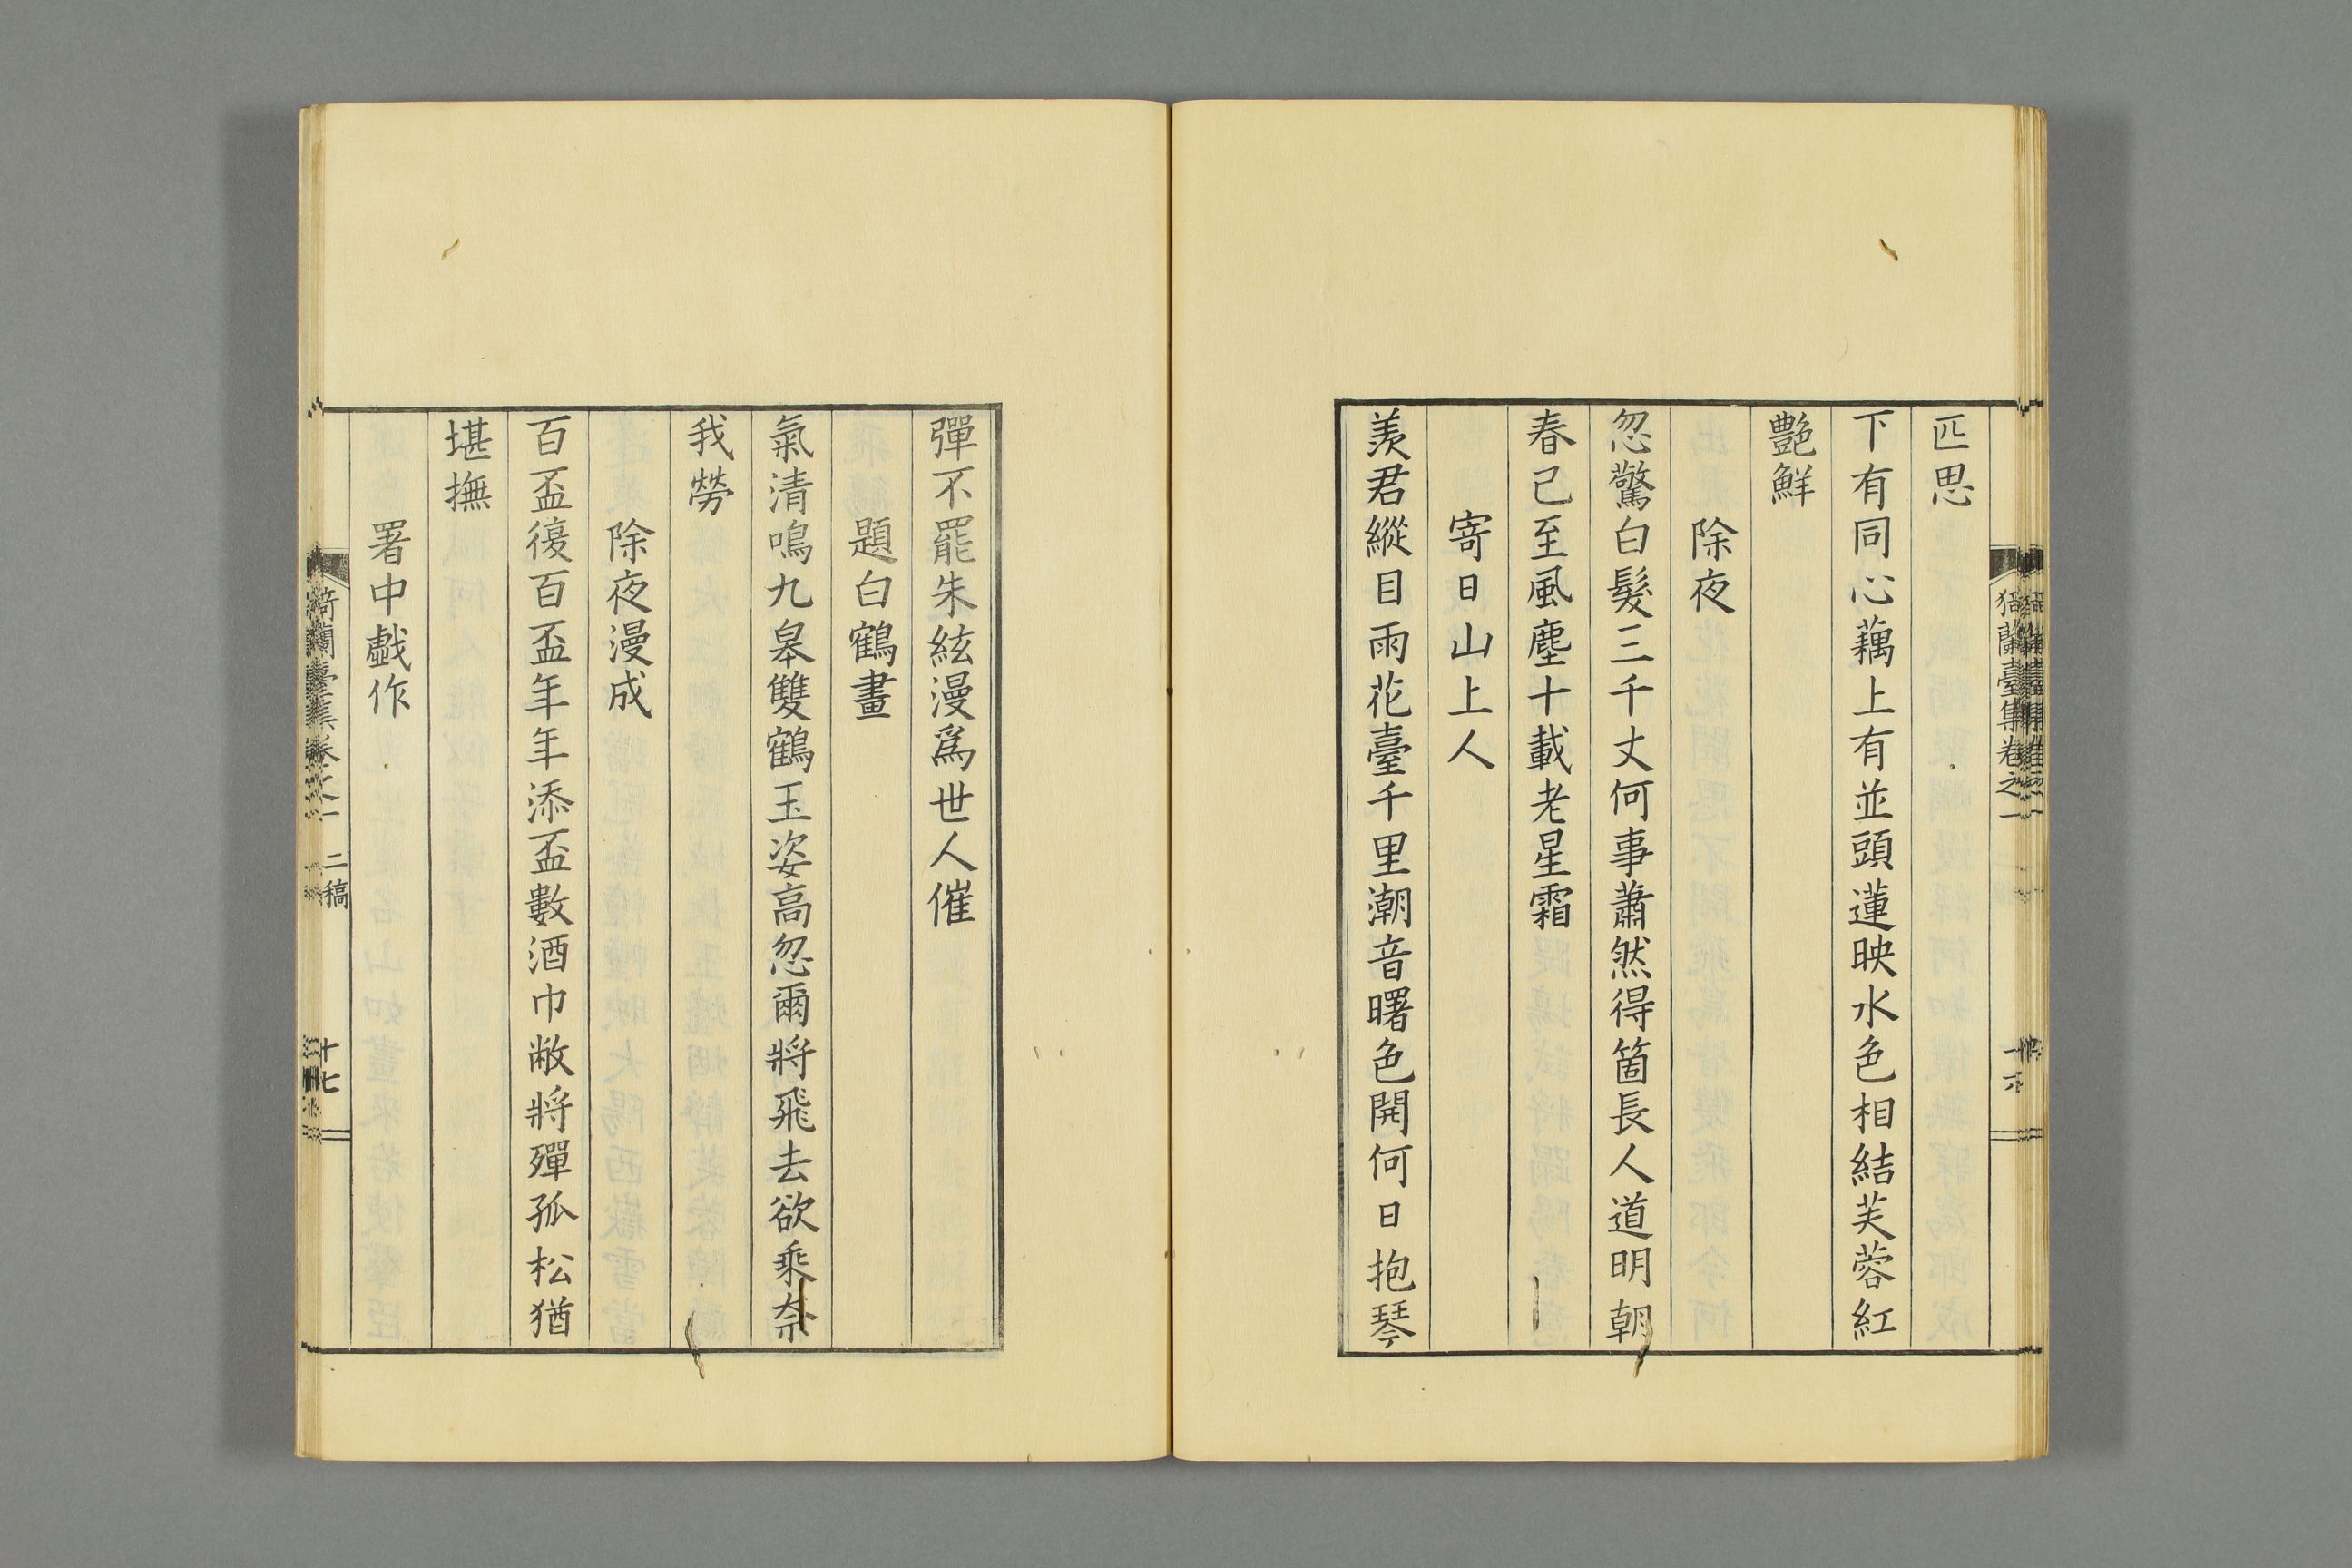 匹思
下有同心藕上有並頭蓮映水色相結芙蓉紅
艷鮮
除夜
忽驚白髮三千丈何事蕭然得箇長人道明朝
春已至風塵十載老星霜
寄日山上人
羨君縱目雨花臺千里潮音曙色開何日抱琴
彈不罷朱絃漫爲世人催
題白鶴畫
氣清鳴九皋雙鶴玉姿高忽爾將飛去欲乘奈
我勞
除夜漫成
百盃復百盃年年添盃數酒巾敝將殫孤松猶
堪撫
署中戲作
猗蘭臺集卷之一 二稿 十七